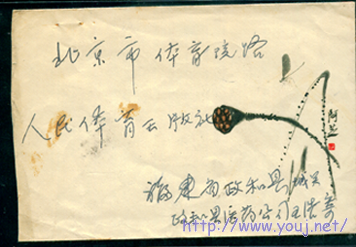 北京市体育馆路
人民体育出版社
福建省政和县城关
政和县医药公司
http://www.youj.net/